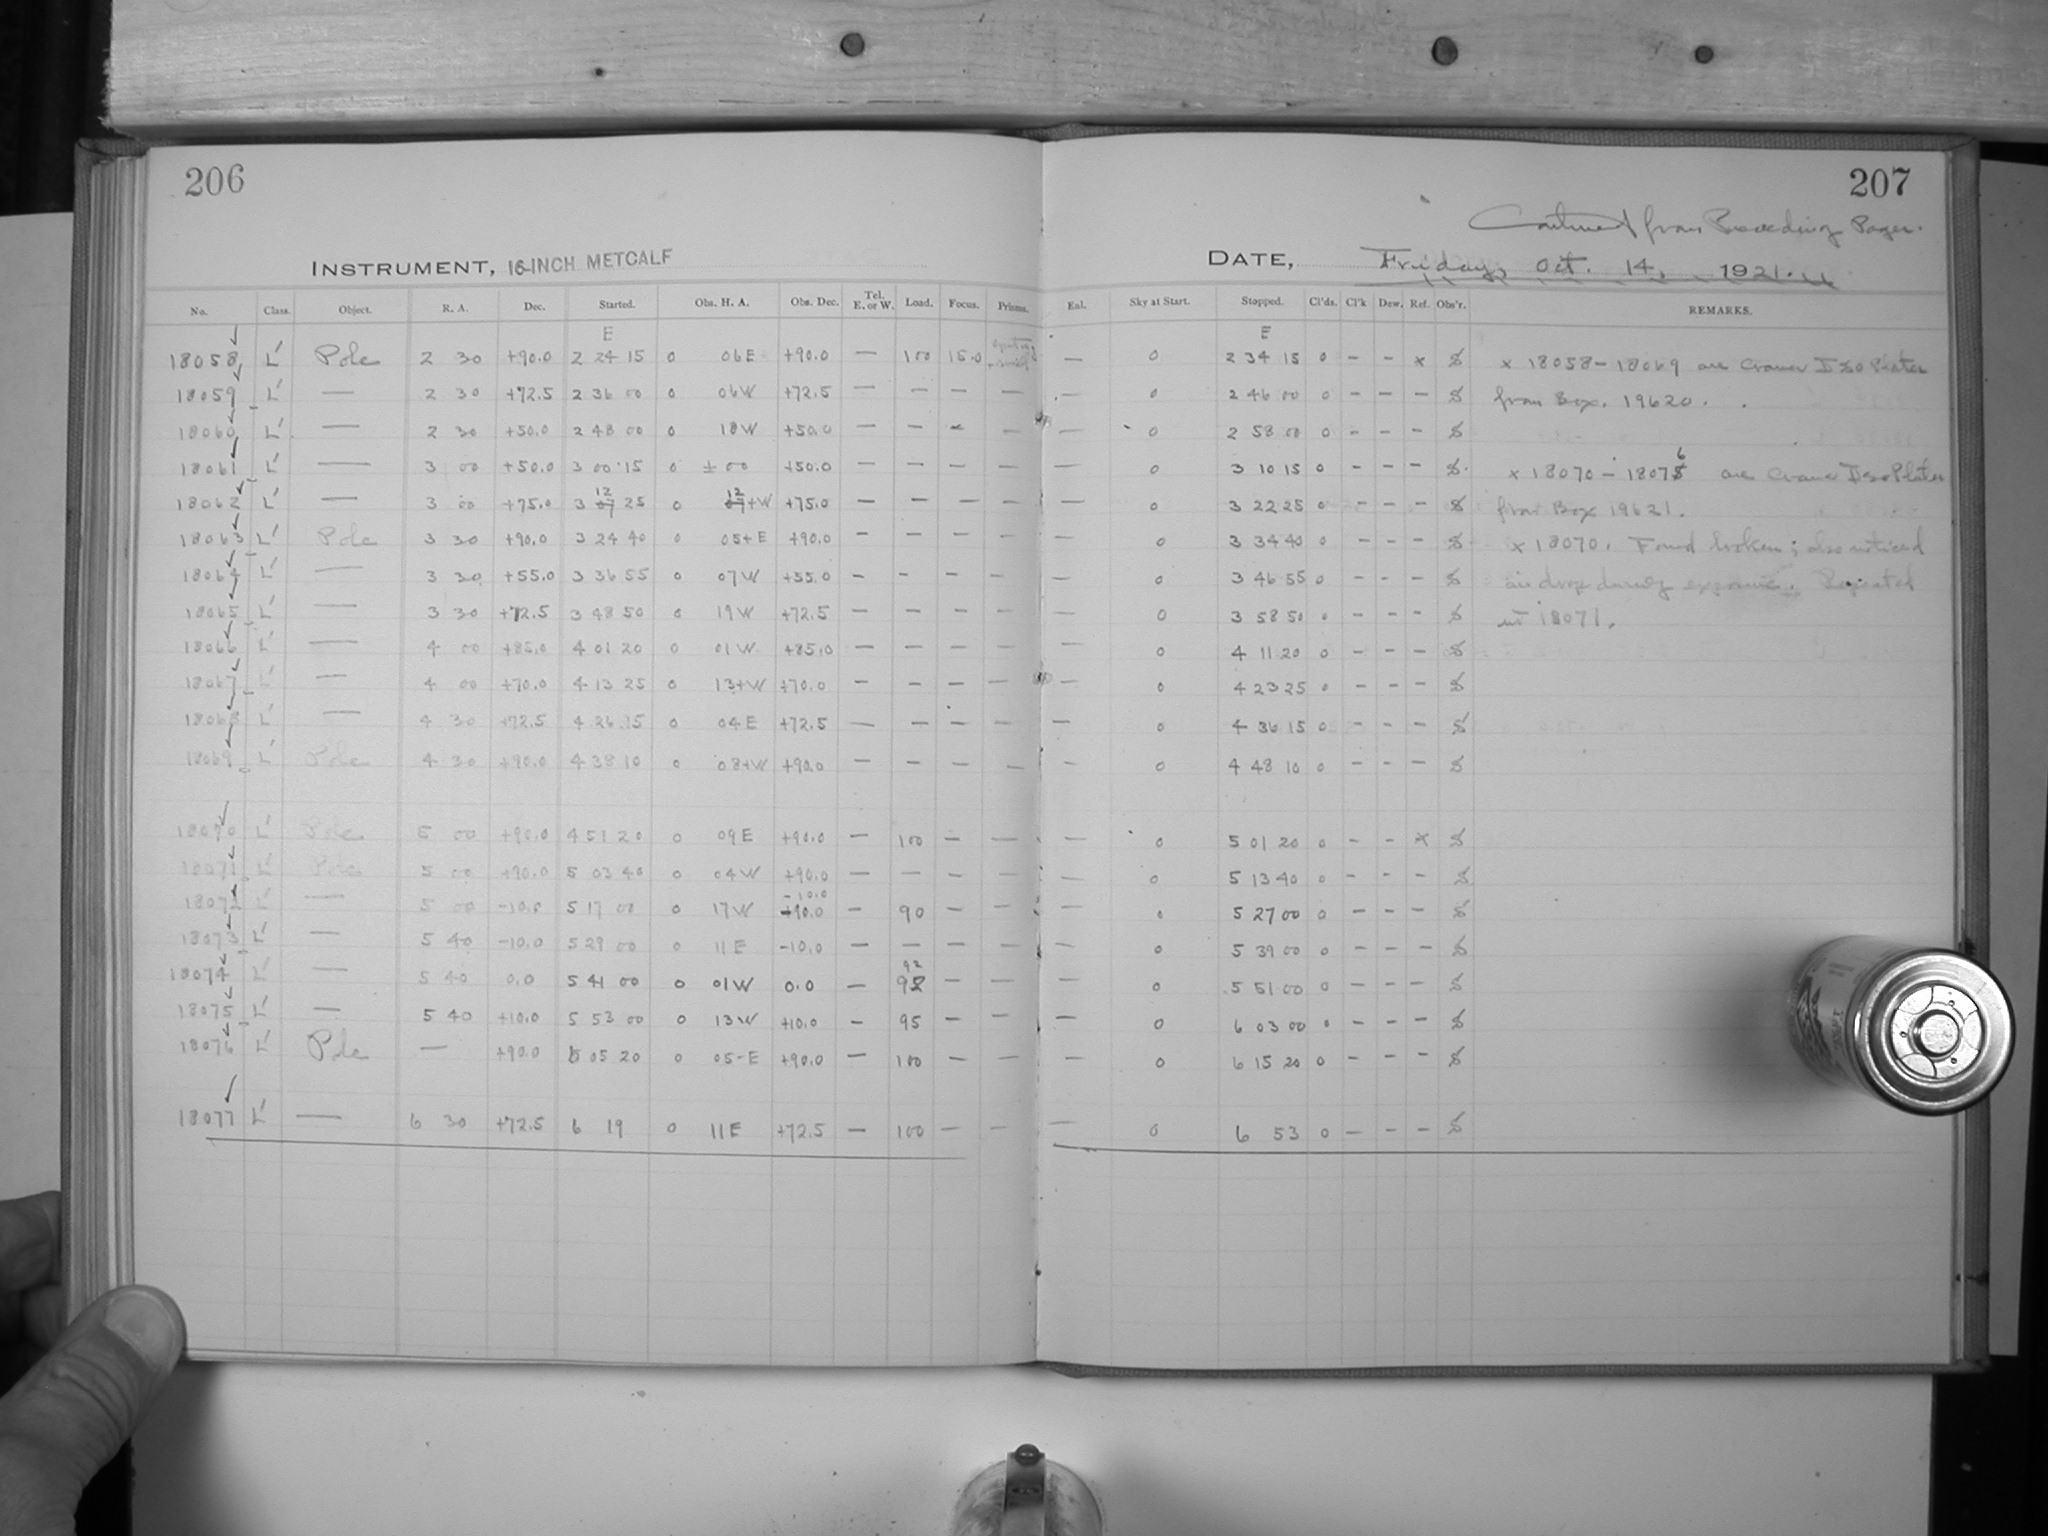 206
207
Continued from Preceding Pages.
INSTRUMENT, 16-INCH METCALF
DATE, Friday, Oct. 14, 1921.
No. Class. Object. R. A. Dec. Started. Obs. H. A. Obs. Dec. Tel. E. or W. Load. Focus. Prisms. Eal. Sky at Start. Stopped. Cl'ds. Cl'k Dew. Ref. Obs'r. REMARKS.
E E
18058 L' Pole 2 30 +90.0 2 24 15 0 06E +90.0 — 100 15.0 — 0 2 34 15 0 – – x S x 18058 – 18069 are Cramer Iso Plates
18059 L' — 2 30 +72.5 2 36 00 0 06W +72.5 — — — — — 0 2 46 00 0 – – – S from Box. 19620.
18060 L' — 2 30 +50.0 2 48 00 0 18W +50.0 — — — — — 0 2 58 00 0 – – – S
18061 L' — 3 00 +50.0 3 00 15 0 ±00 +50.0 — — — — — 0 3 10 15 0 – – – S x 18070 – 18076 are Cramer Iso Plates
18062 L' — 3 00 +75.0 3 12 25 0 12+W +75.0 — — — — — 0 3 22 25 0 – – – S from Box 19621.
18063 L' Pole 3 30 +90.0 3 24 40 0 05+E +90.0 — — — — — 0 3 34 40 0 – – – S x 18070. Found broken; also noticed
18064 L' — 3 30 +55.0 3 36 55 0 07W +55.0 — — — — — 0 3 46 55 0 – – – S air drop during exposure. Repeated
18065 L' — 3 30 +72.5 3 48 50 0 19W +72.5 — — — — — 0 3 58 50 0 – – – S 18071.
18066 L' — 4 00 +85.0 4 01 20 0 01W +85.0 — — — — — 0 4 11 20 0 – – – S
18067 L' — 4 00 +70.0 4 13 25 0 13+W +70.0 — — — — — 0 4 23 25 0 – – – S
18068 L' — 4 30 +72.5 4 26 15 0 04E +72.5 — — — — — 0 4 36 15 0 – – – S
18069 L' Pole 4 30 +90.0 4 38 10 0 08+W +90.0 — — — — — 0 4 48 10 0 – – – S
18070 L' Pole 5 00 +90.0 4 51 20 0 09E +90.0 — 100 — — — 0 5 01 20 0 – – x S
18071 L' Pole 5 00 +90.0 5 03 40 0 04W +90.0 — — — — — 0 5 13 40 0 – – – S
18072 L' — 5 00 -10.0 5 17 00 0 17W -10.0 — 90 — — — 0 5 27 00 0 – – – S
18073 L' — 5 40 -10.0 5 29 00 0 11E -10.0 — — — — — 0 5 39 00 0 – – – S
18074 L' — 5 40 0.0 5 41 00 0 01W 0.0 — 92 — — — 0 5 51 00 0 – – – S
18075 L' — 5 40 +10.0 5 53 00 0 13W +10.0 — 95 — — — 0 6 03 00 0 – – – S
18076 L' Pole — +90.0 6 05 20 0 05-E +90.0 — 100 — — — 0 6 15 20 0 – – – S
18077 L' — 6 30 +72.5 6 19 0 11E +72.5 — 100 — — — 0 6 53 0 – – – S